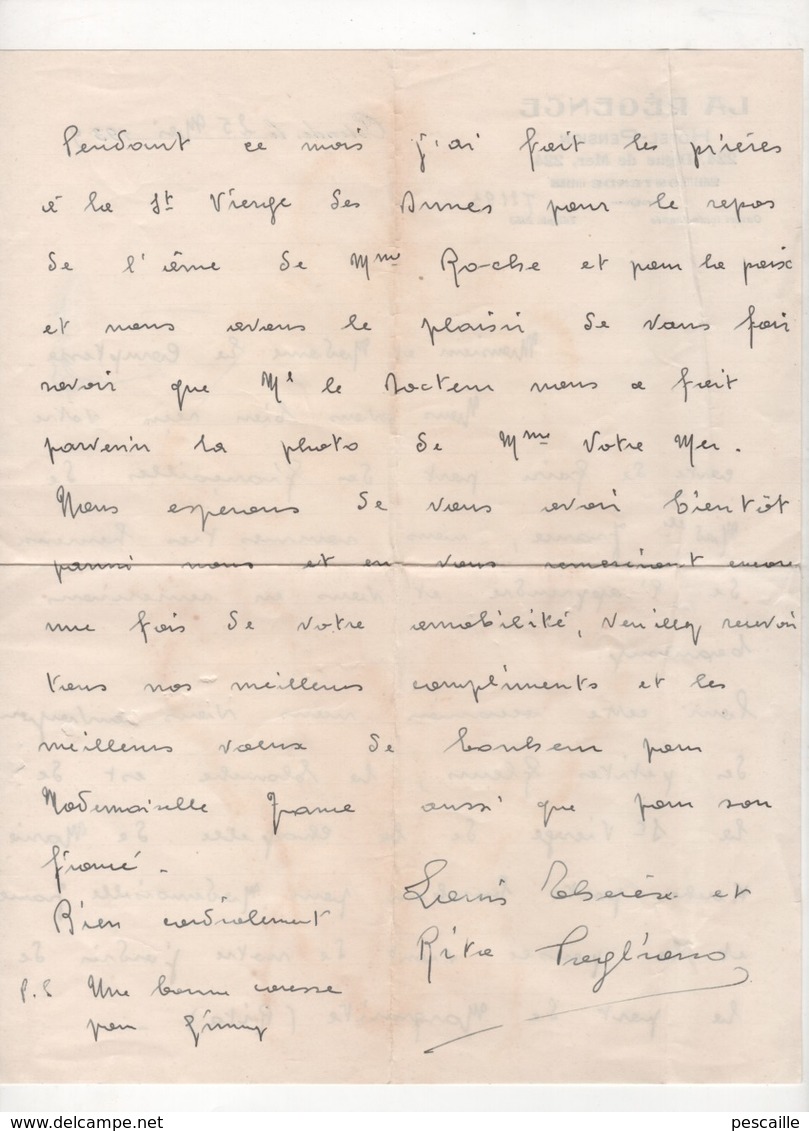 Pendant ce mois j'ai fait les prières
à la St Vierge des Dunes pour le repos
de l'âme de Mme Roche et pour la paix
et nous avons le plaisir de vous fair
savoir que Mr le Docteur nous a fait
parvenir la photo de Mme Votre Mer.
Nous esperons de vous avoir bientôt
parmi nous et en vous remerciant encore
une fois de votre amabilité, veuillez recevoir
tous nos meilleurs compliments et les
meilleurs voeux de bonheur pour
Mademoiselle France aussi que pour son
fiancé.
Bien cordialement
Louis Thérèse et
Rita
P.S Une bonne caresse
pour Jimmy
pescaille